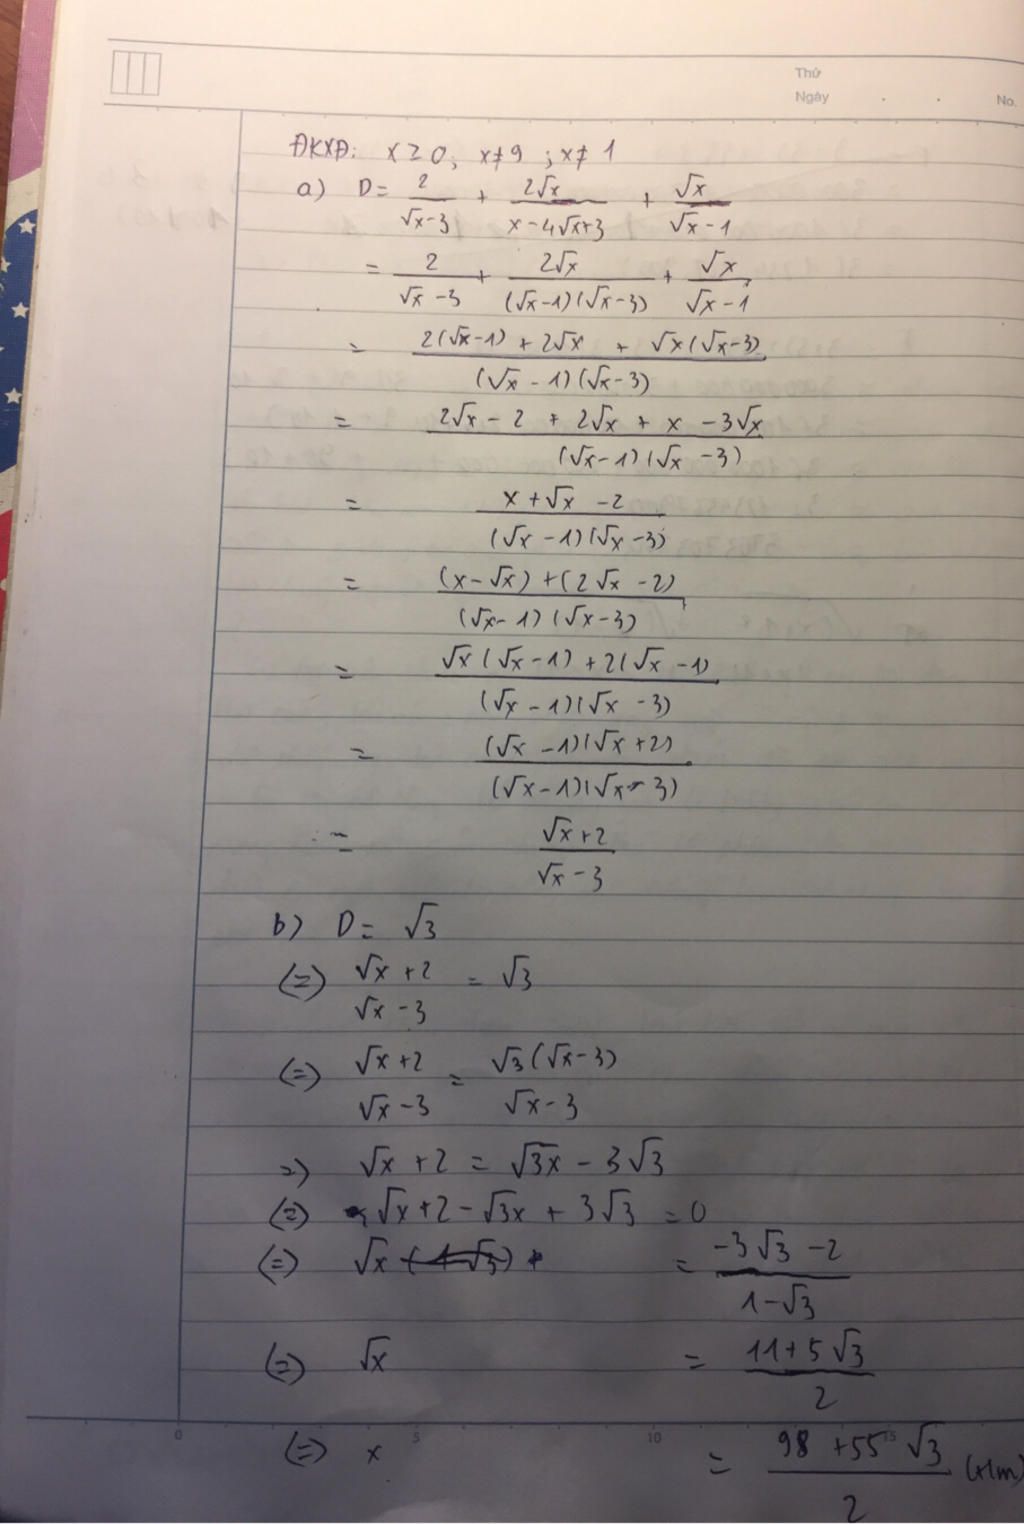 Thứ
Ngày
No.
ĐKXĐ: x ≥ 0; x ≠ 9 ; x ≠ 1
a) D = 2/(√x-3) + 2√x/(x-4√x+3) + √x/(√x-1)
= 2/(√x-3) + 2√x/((√x-1)(√x-3)) + √x/(√x-1)
= (2(√x-1) + 2√x + √x(√x-3))/((√x-1)(√x-3))
= (2√x - 2 + 2√x + x - 3√x)/((√x-1)(√x-3))
= (x + √x - 2)/((√x-1)(√x-3))
= ((x-√x) + (2√x-2))/((√x-1)(√x-3))
= (√x(√x-1) + 2(√x-1))/((√x-1)(√x-3))
= ((√x-1)(√x+2))/((√x-1)(√x-3))
= (√x+2)/(√x-3)
b) D = √3
(=) (√x+2)/(√x-3) = √3
(=) (√x+2)/(√x-3) = √3(√x-3)/(√x-3)
=) √x + 2 = √3x - 3√3
(=) √x + 2 - √3x + 3√3 = 0
(=) √x = (-3√3 - 2)/(1-√3)
(=) √x = (11+5√3)/2
(=) x = (98+55√3)/2 (t/m)
0 5 10 15